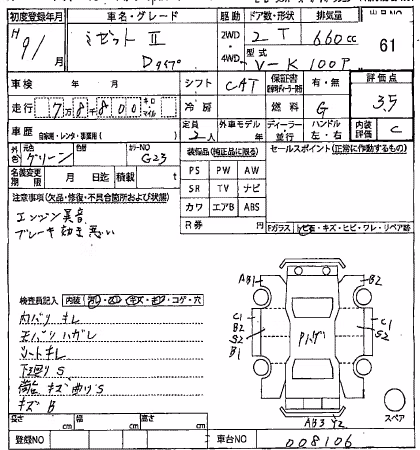 初度登録年月 車名・グレード 駆動 ドア数・形状 排気量
H 9/ 月 ミゼットⅡ Dタイプ 2WD 4WD 2 T 660cc 61
型式 V-K100P
車検 年 月 シフト CAT 保証書 有・無 評価点
走行 7万8千800 キロ マイル 冷房 燃料 G 3.5
車歴 自家用・レンタ・事業用( ) 定員 2人 外車モデル 年 ディーラー 並行 ハンドル 左・右 内装評価 C
外色 元色 グリーン 色替 カラーNO G23
装備品(純正品に限る) セールスポイント(正常に作動するもの)
名義変更期限 月 日迄 積載 t
PS PW AW
SR TV ナビ
カワ エアB ABS
R券 円
注意事項(欠品・修復・不具合箇所および状態)
エンジン異音
ブレーキ効き悪い
Fガラス トビ石・キズ・ヒビ・ワレ・リペア跡
検査員記入 内装 コゲ・穴
内バリ キレ
天バリ ハガレ
シートキレ
下廻りS
荷台 キズ 曲りS
キズ B
AB1 B2
C1 B2 S2 B1
Pハゲ
C1 S2
AB3 Y2
スペア
長さ cm 幅 cm 高さ cm
登録NO 車台NO 008106